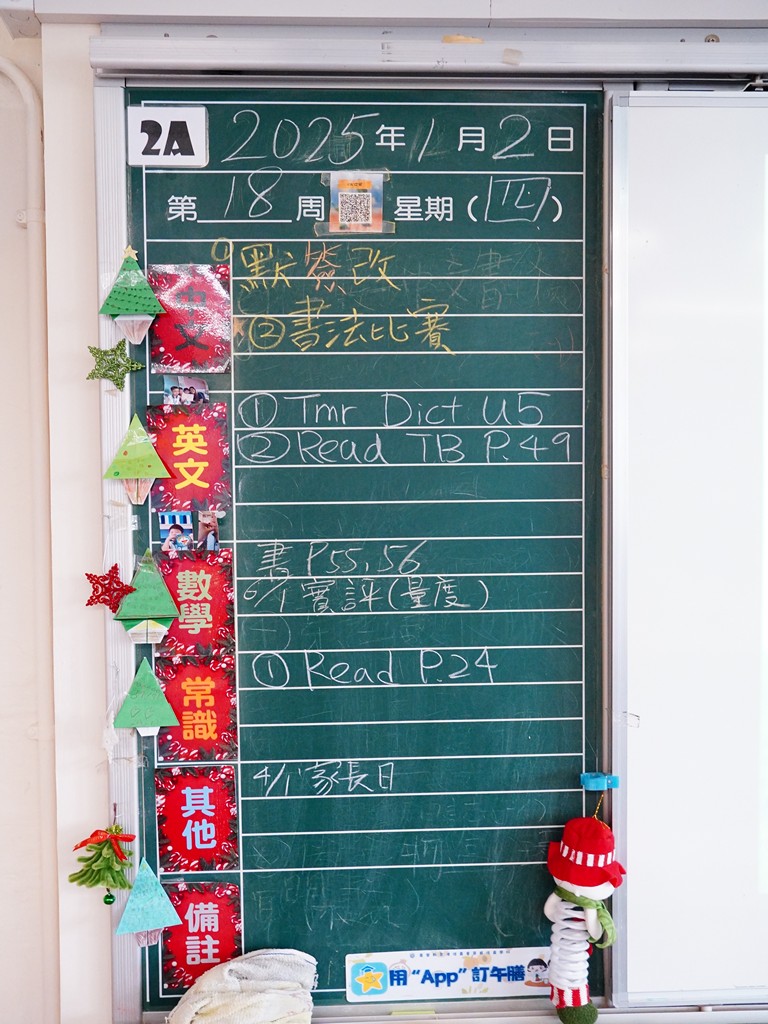 2A
2025年1月2日
第18周 星期(四)
中文
①默簽改
②書法比賽
英文
①Tmr Dict U5
②Read TB P.49
數學
書P55,56
6/1實評(量度)
常識
①Read P.24
其他
4/1家長日
備註
用“App”訂午膳